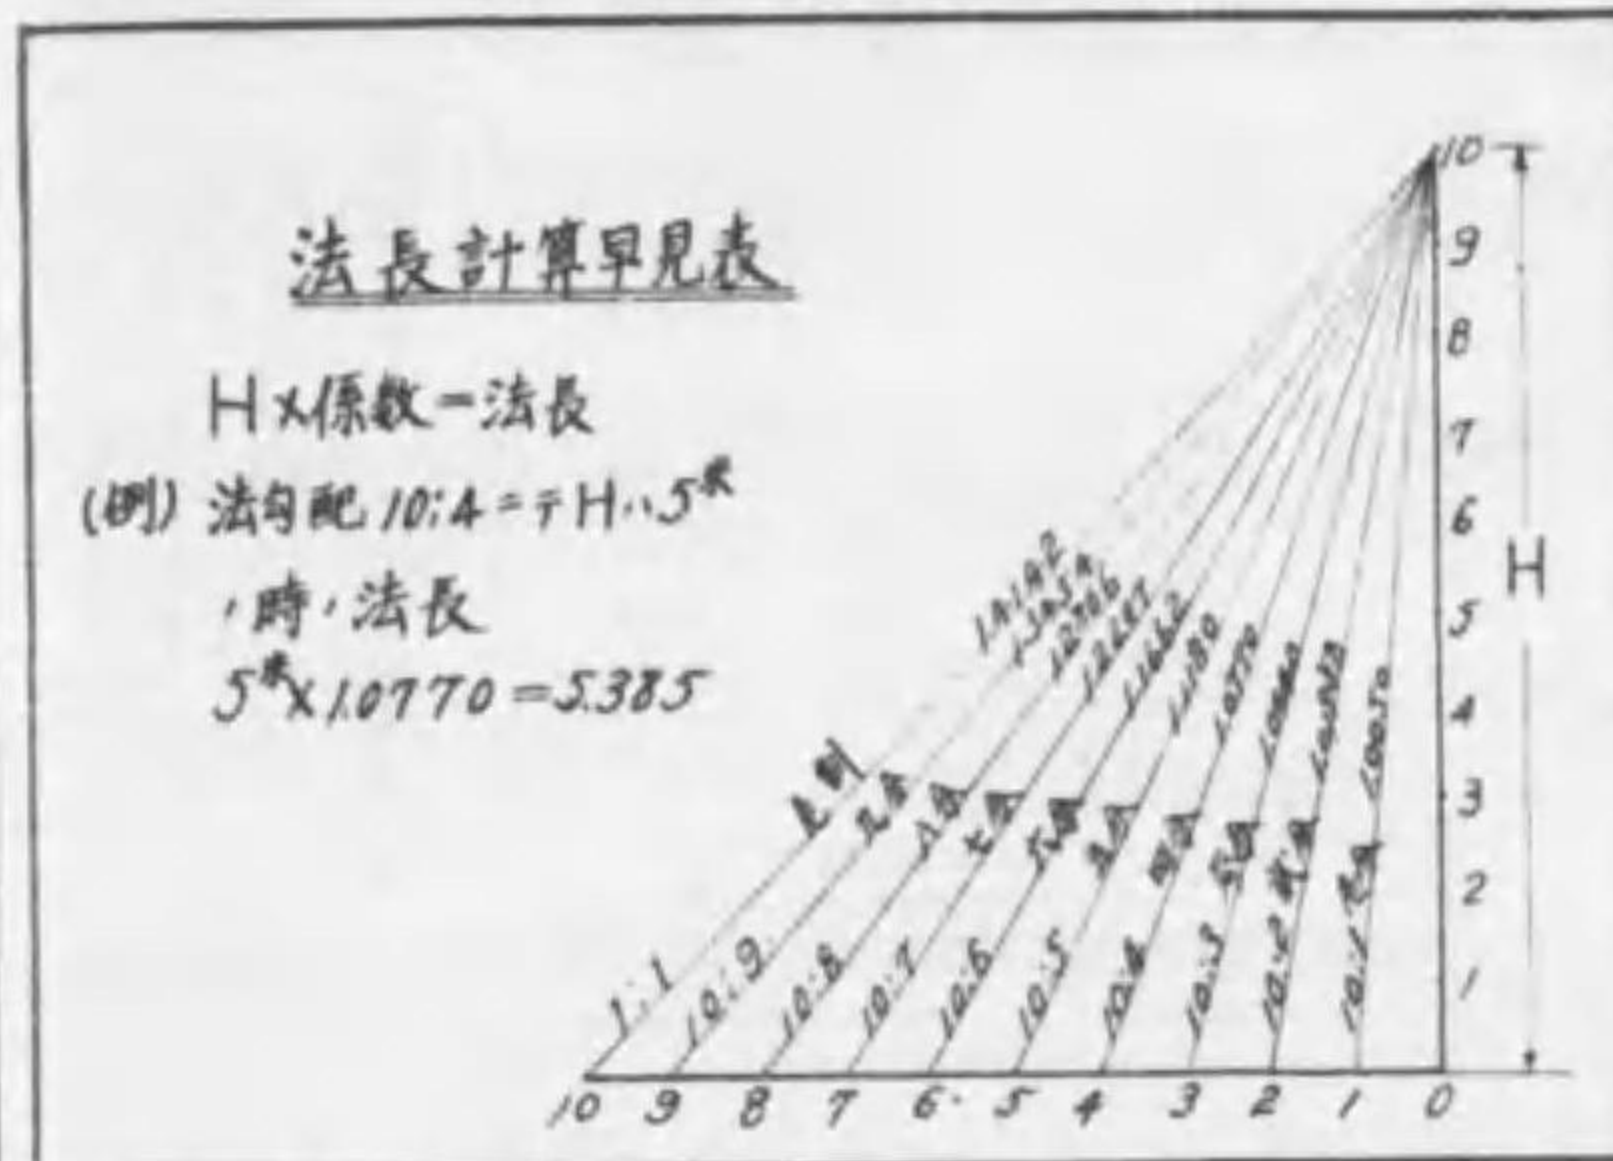 法長計算早見表
H×係数=法長
(例) 法勾配 10:4ニテHハ5米
ノ時ノ法長
5米×1.0770=5.385
10
9
8
7
6
5
4
3
2
1
H
1.4142
1.3454
1.2806
1.1662
1.1180
1.0770
1.0050
九分
八分
七分
六分
五分
四分
1:1
10:9
10:8
10:7
10:6
10:5
10:4
10:3
10:2
10:1
10 9 8 7 6 5 4 3 2 1 0